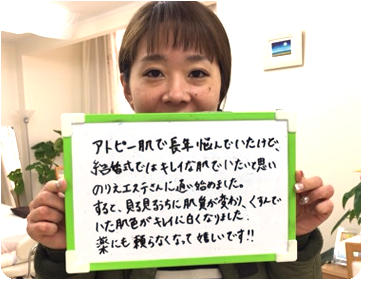 アトピー肌で長年悩んでいたけど、
結婚式ではキレイな肌でいたいて思い
のりえエステさんに通い始めました。
すると、見る見るうちに肌質が変わり、くすんで
いた肌色がキレイに白くなりました。
薬にも頼らなくなって嬉しいです!!